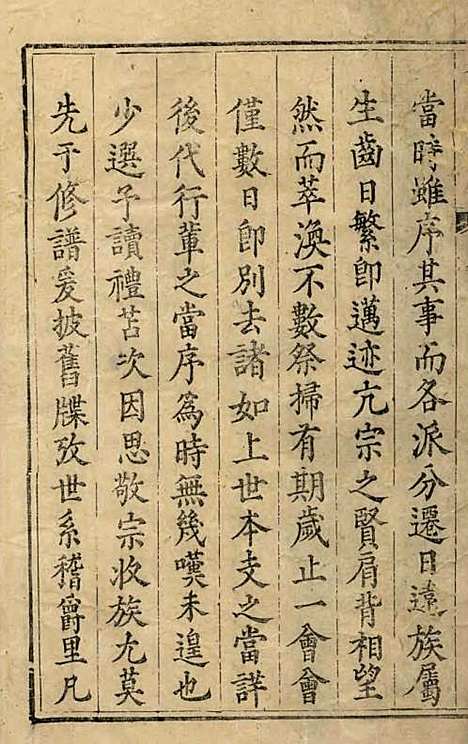 當時雖序其事而各派分遷日遠族屬
生齒日繁卽邁迹亢宗之賢肩背相望
然而萃渙不數祭掃有期歲止一會會
僅數日卽別去諸如上世本支之當詳
後代行輩之當序為時無幾嘆未遑也
少選予讀禮苫次因思敬宗收族尤莫
先于修譜爰披舊牒攷世系稽爵里凡